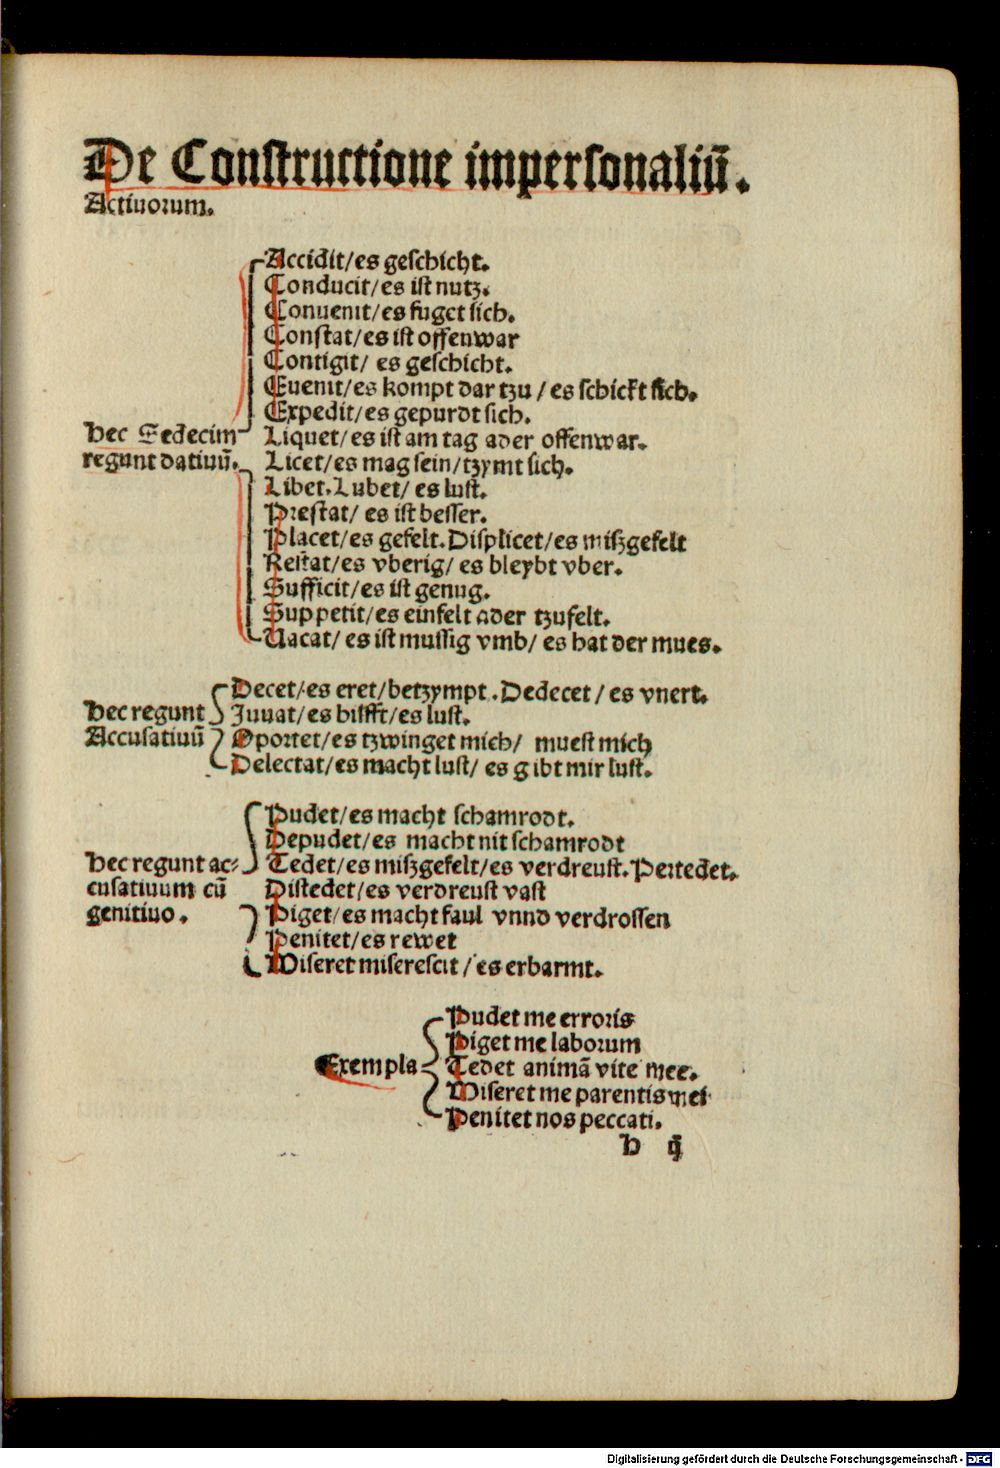 De Conſtructione imperſonaliū.
Actiuoꝛum.
Accidit/es geſchicht.
Conducit/es iſt nutz.
Conuenit/es fuget ſich.
Conſtat/es iſt offenwar
Contigit/ es geſchicht.
Euenit/es kompt dar tzu / es ſchickt ſich.
Expedit/es gepurdt ſich.
Hec Sedecim
regunt datiuū.
Liquet/es iſt am tag ader offenwar.
Licet/es mag ſein/tzymt ſich.
Libet.Lubet/ es luſt.
Pꝛeſtat/ es iſt beſſer.
Placet/es gefelt.Diſplicet/es miſzgefelt
Reſtat/es vberig/ es bleybt vber.
Sufficit/es iſt genug.
Suppetit/es einfelt ader tzufelt.
Uacat/ es iſt muſſig vmb/ es hat der mues.
Decet/es eret/betzympt.Dedecet / es vnert.
Hec regunt
Accuſatiuū
Iuuat/es hilfft/es luſt.
Opoꝛtet/es tzwinget mich/ mueſt mich
Delectat/es macht luſt/ es gibt mir luſt.
Pudet/es macht ſchamrodt.
Depudet/es macht nit ſchamrodt
Hec regunt ac⸗
cuſatiuum cū
genitiuo.
Tedet/es miſzgefelt/es verdreuſt.Peꝛtedet.
Diſtedet/es verdreuſt vaſt
Piget/es macht faul vnnd verdroſſen
Penitet/es rewet
Miſeret miſereſcit/es erbarmt.
Exempla
Pudet me erroꝛis
Piget me laboꝛum
Tedet animā vite mee.
Miſeret me parentis mei
Penitet nos peccati.
b ij
Digitalisierung gefördert durch die Deutsche Forschungsgemeinschaft - DFG